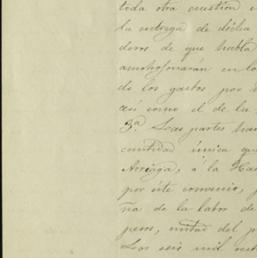 toda otra cuestion
la entrega de dicha
deros de que habla
amohonarán en lo
de los gastos por
así como el de la
3ª Las partes
cantidad única que
Arriaga, á la Hac
por este convenio,
ña de la labor de
pesos, mitad del p
Los seis mil